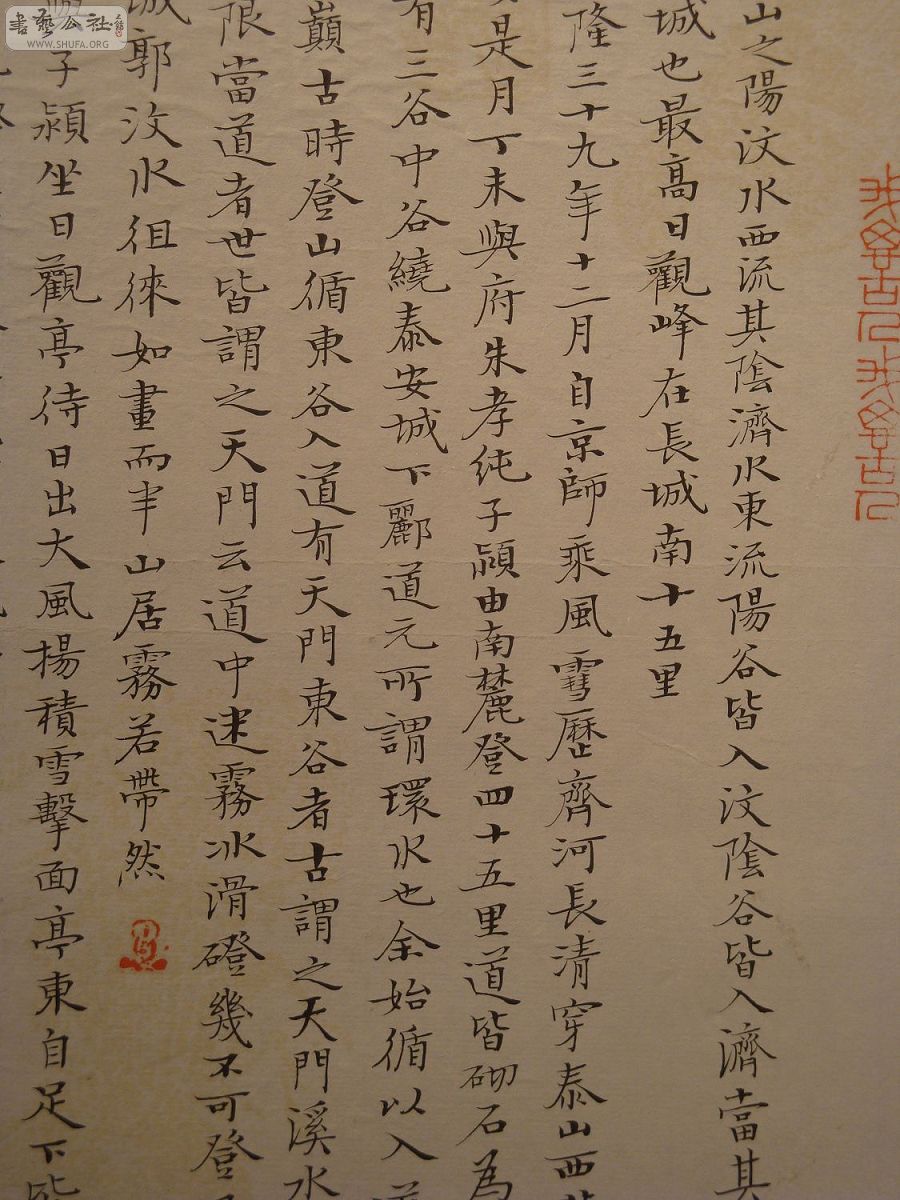 山之陽汶水西流其陰濟水東流陽谷皆入汶陰谷皆入濟當其
城也最高日觀峰在長城南十五里
隆三十九年十二月自京師乘風雪歷齊河長清穿泰山西
是月丁未與府朱孝純子潁由南麓登四十五里道皆砌石為
有三谷中谷繞泰安城下酈道元所謂環水也余始循以入道
巔古時登山循東谷入道有天門東谷者古謂之天門溪水
限當道者世皆謂之天門云道中迷霧冰滑磴幾不可登
城郭汶水徂徠如畫而半山居霧若帶然
與子潁坐日觀亭待日出大風揚積雪擊面亭東自足下皆
書藝公社
WWW.SHUFA.ORG